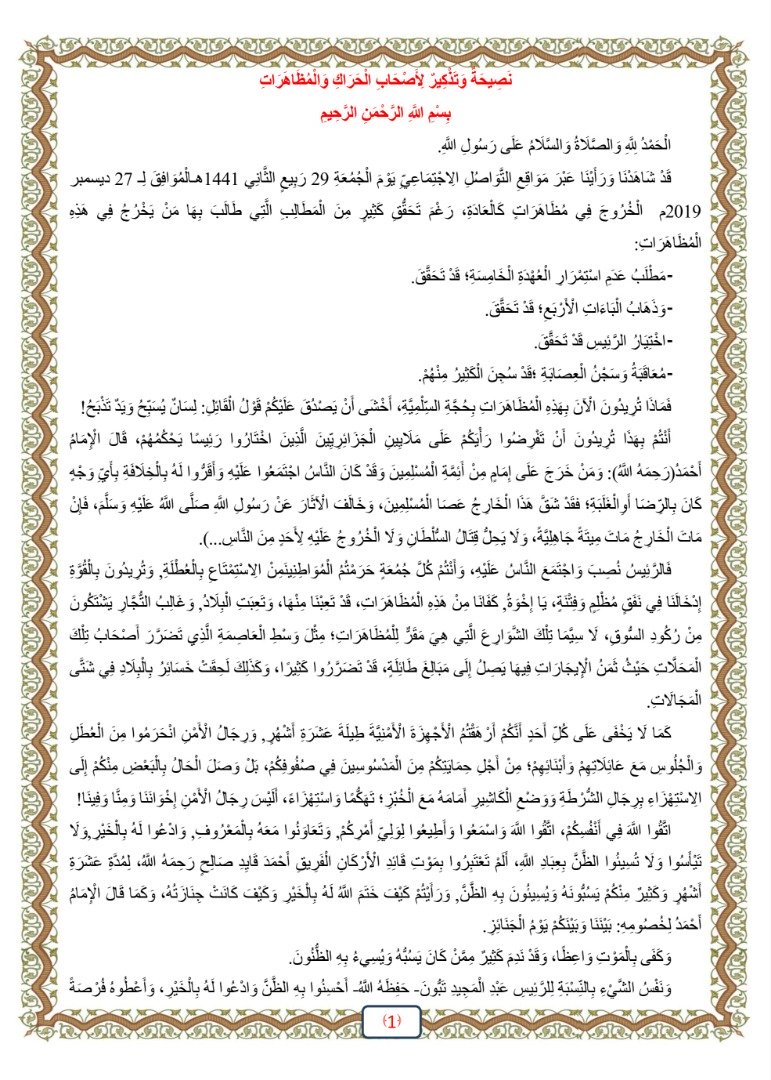 نَصِيحَةٌ وَتَذْكِيرٌ لِأَصْحَابِ الْحَرَاكِ وَالْمُظَاهَرَاتِ
بِسْمِ اللَّهِ الرَّحْمَنِ الرَّحِيمِ
الْحَمْدُ لِلَّهِ وَالصَّلَاةُ وَالسَّلَامُ عَلَى رَسُولِ اللَّهِ.
قَدْ شَاهَدْنَا وَرَأَيْنَا عَبْرَ مَوَاقِعِ التَّوَاصُلِ الِاجْتِمَاعِيِّ يَوْمَ الْجُمُعَةِ 29 رَبِيعِ الثَّانِي 1441هـالْمُوَافِقَ لِـ 27 ديسمبر
2019م الْخُرُوجَ فِي مُظَاهَرَاتٍ كَالْعَادَةِ، رَغْمَ تَحَقُّقِ كَثِيرٍ مِنَ الْمَطَالِبِ الَّتِي طَالَبَ بِهَا مَنْ يَخْرُجُ فِي هَذِهِ
الْمُظَاهَرَاتِ:
-مَطْلَبُ عَدَمِ اسْتِمْرَارِ الْعُهْدَةِ الْخَامِسَةِ؛ قَدْ تَحَقَّقَ.
-وَذَهَابُ الْبَاءَاتِ الْأَرْبَعِ؛ قَدْ تَحَقَّقَ.
-اخْتِيَارُ الرَّئِيسِ قَدْ تَحَقَّقَ.
-مُعَاقَبَةُ وَسَجْنُ الْعِصَابَةِ ؛قَدْ سُجِنَ الْكَثِيرُ مِنْهُمْ.
فَمَاذَا تُرِيدُونَ الْآنَ بِهَذِهِ الْمُظَاهَرَاتِ بِحُجَّةِ السِّلْمِيَّةِ، أَخْشَى أَنْ يَصْدُقَ عَلَيْكُمْ قَوْلُ الْقَائِلِ: لِسَانٌ يُسَبِّحُ وَيَدٌ تَذْبَحُ!
أَنْتُمْ بِهَذَا تُرِيدُونَ أَنْ تَفْرِضُوا رَأْيَكُمْ عَلَى مَلَايِينِ الْجَزَائِرِيِّينَ الَّذِينَ اخْتَارُوا رَئِيسًا يَحْكُمُهُمْ، قَالَ الْإِمَامُ
أَحْمَدُ(رَحِمَهُ اللَّهُ): وَمَنْ خَرَجَ عَلَى إِمَامٍ مِنْ أَئِمَّةِ الْمُسْلِمِينَ وَقَدْ كَانَ النَّاسُ اجْتَمَعُوا عَلَيْهِ وَأَقَرُّوا لَهُ بِالْخِلَافَةِ بِأَيِّ وَجْهٍ
كَانَ بِالرِّضَا أَوِالْغَلَبَةِ؛ فقَدْ شَقَّ هَذَا الْخَارِجُ عَصَا الْمُسْلِمِينَ، وَخَالَفَ الْآثَارَ عَنْ رَسُولِ اللَّهِ صَلَّى اللَّهُ عَلَيْهِ وَسَلَّمَ، فَإِنْ
مَاتَ الْخَارِجُ مَاتَ مِيتَةً جَاهِلِيَّةً، وَلَا يَحِلُّ قِتَالُ السُّلْطَانِ وَلَا الْخُرُوجُ عَلَيْهِ لِأَحَدٍ مِنَ النَّاسِ...).
فَالرَّئِيسُ نُصِبَ وَاجْتَمَعَ النَّاسُ عَلَيْهِ، وَأَنْتُمْ كُلَّ جُمُعَةٍ حَرَمْتُمُ الْمُوَاطِنِينَمِنْ الِاسْتِمْتَاعِ بِالْعُطْلَةِ, وَتُرِيدُونَ بِالْقُوَّةِ
إِدْخَالَنَا فِي نَفَقٍ مُظْلِمٍ وَفِتْنَةٍ، يَا إِخْوَةُ, كَفَانَا مِنْ هَذِهِ الْمُظَاهَرَاتِ، قَدْ تَعِبْنَا مِنْهَا، وَتَعِبَتِ الْبِلَادُ, وَغَالِبُ التُّجَّارِ يَشْتَكُونَ
مِنْ رُكُودِ السُّوقِ، لَا سِيَّمَا تِلْكَ الشَّوَارِعَ الَّتِي هِيَ مَقَرٌّ لِلْمُظَاهَرَاتِ؛ مِثْلُ وَسْطِ الْعَاصِمَةِ الَّذِي تَضَرَّرَ أَصْحَابُ تِلْكَ
الْمَحَلَّاتِ حَيْثُ ثَمَنُ الْإِيجَارَاتِ فِيهَا يَصِلُ إِلَى مَبَالِغَ طَائِلَةٍ، قَدْ تَضَرَّرُوا كَثِيرًا، وَكَذَلِكَ لَحِقَتْ خَسَائِرُ بِالْبِلَادِ فِي شَتَّى
الْمَجَالَاتِ.
كَمَا لَا يَخْفَى عَلَى كُلِّ أَحَدٍ أَنَّكُمْ أَرْهَقْتُمُ الْأَجْهِزَةَ الْأَمْنِيَّةَ طِيلَةَ عَشَرَةِ أَشْهُرٍ, وَرِجَالُ الْأَمْنِ انْحَرَمُوا مِنَ الْعُطَلِ
وَالْجُلُوسِ مَعَ عَائِلَاتِهِمْ وَأَبْنَائِهِمْ؛ مِنْ أَجْلِ حِمَايَتِكُمْ مِنَ الْمَدْسُوسِينَ فِي صُفُوفِكُمْ، بَلْ وَصَلَ الْحَالُ بِالْبَعْضِ مِنْكُمْ إِلَى
الِاسْتِهْزَاءِ بِرِجَالِ الشُّرْطَةِ وَوَضْعِ الْكَاشِيرِ أَمَامَهُ مَعَ الْخُبْزِ؛ تَهَكُّمًا وَاسْتِهْزَاءً، أَلَيْسَ رِجَالُ الْأَمْنِ إِخْوَانَنَا وَمِنَّا وَفِينَا!
اتَّقُوا اللَّهَ فِي أَنْفُسِكُمْ، اتَّقُوا اللَّهَ وَاسْمَعُوا وَأَطِيعُوا لِوَلِيِّ أَمْرِكُمْ, وَتَعَاوَنُوا مَعَهُ بِالْمَعْرُوفِ, وَادْعُوا لَهُ بِالْخَيْرِ,وَلَا
تَيْأَسُوا وَلَا تُسِيئُوا الظَّنَّ بِعِبَادِ اللَّهِ، أَلَمْ تَعْتَبِرُوا بِمَوْتِ قَائِدِ الْأَرْكَانِ الْفَرِيقِ أَحْمَدَ قَايِد صَالِحٍ رَحِمَهُ اللَّهُ، لِمُدَّةِ عَشَرَةِ
أَشْهُرٍ وَكَثِيرٌ مِنْكُمْ يَسُبُّونَهُ وَيُسِيئُونَ بِهِ الظَّنَّ, وَرَأَيْتُمْ كَيْفَ خَتَمَ اللَّهُ لَهُ بِالْخَيْرِ وَكَيْفَ كَانَتْ جِنَازَتُهُ، وَكَمَا قَالَ الْإِمَامُ
أَحْمَدُ لِخُصُومِهِ: بَيْنَنَا وَبَيْنَكُمْ يَوْمُ الْجَنَائِزِ.
وَكَفَى بِالْمَوْتِ وَاعِظًا، وَقَدْ نَدِمَ كَثِيرٌ مِمَّنْ كَانَ يَسُبُّهُ وَيُسِيءُ بِهِ الظُّنُونَ.
وَنَفْسُ الشَّيْءِ بِالنِّسْبَةِ لِلرَّئِيسِ عَبْدِ الْمَجِيدِ تَبُّونَ- حَفِظَهُ اللَّهُ- أَحْسِنُوا بِهِ الظَّنَّ وَادْعُوا لَهُ بِالْخَيْرِ، وَأَعْطُوهُ فُرْصَةً
(1)